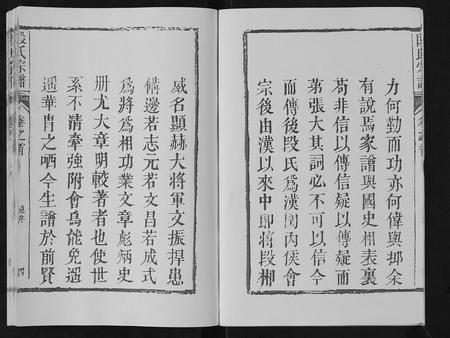 力何勤而功亦何偉與抑余
有說焉家譜與國史相表裏
苟非信以傳信疑以傳疑而
第張大其詞必不可以信今
而傳後段氏爲漢関內侯會
宗後由漢以來中卽將段郴
威名顯赫大將軍文振捍患
備邊若志元若文昌若成式
爲將爲相功業文章彪炳史
册尤大章明較著者也使世
系不清牽強附會烏能免遥
遥華胄之哂今生譜於前賢
段氏宗譜
卷之首
四